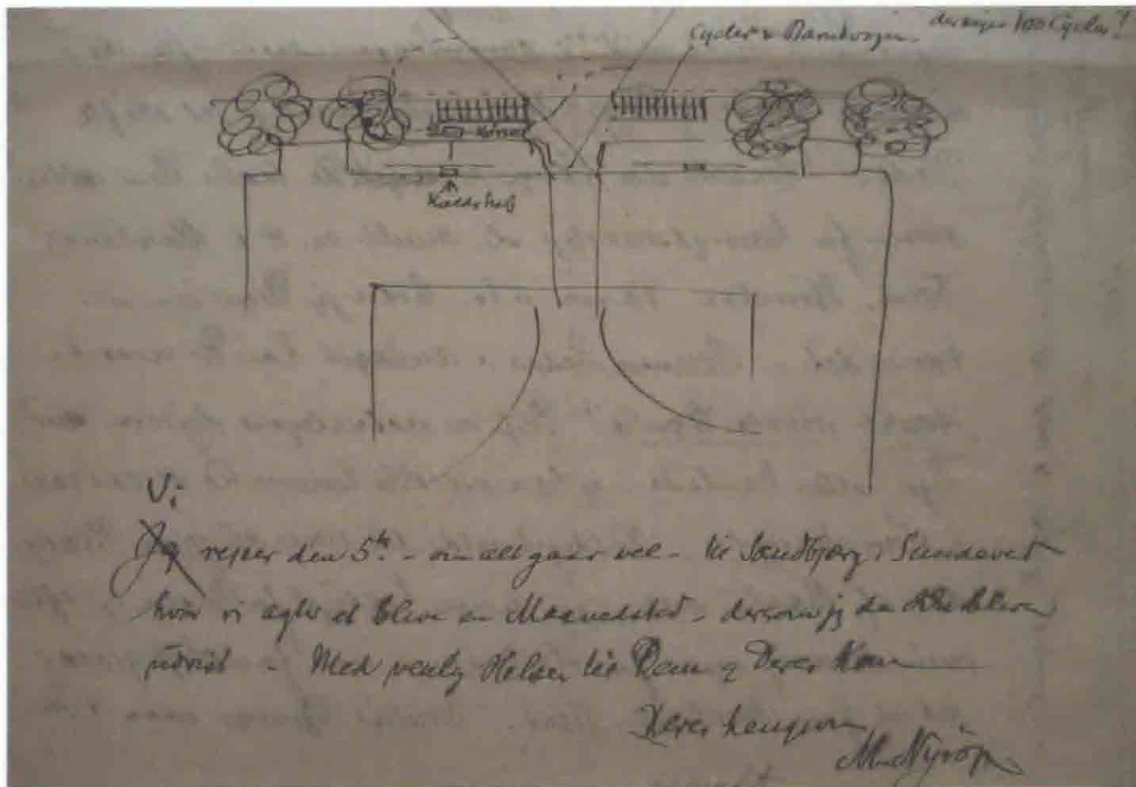 Cycler & Barnevogne. der siger 100 Cycler!
Kælderhals
Vi
Jeg rejser den 5te - om alt gaar vel - til Sandbjerg i Sundeved
hvor vi agter at blive en Maanedstid - dersom jeg da ikke bliver
udvist - Med venlig Hilsen til Dem og Deres Kone
Deres hengivne
M. Nyrop